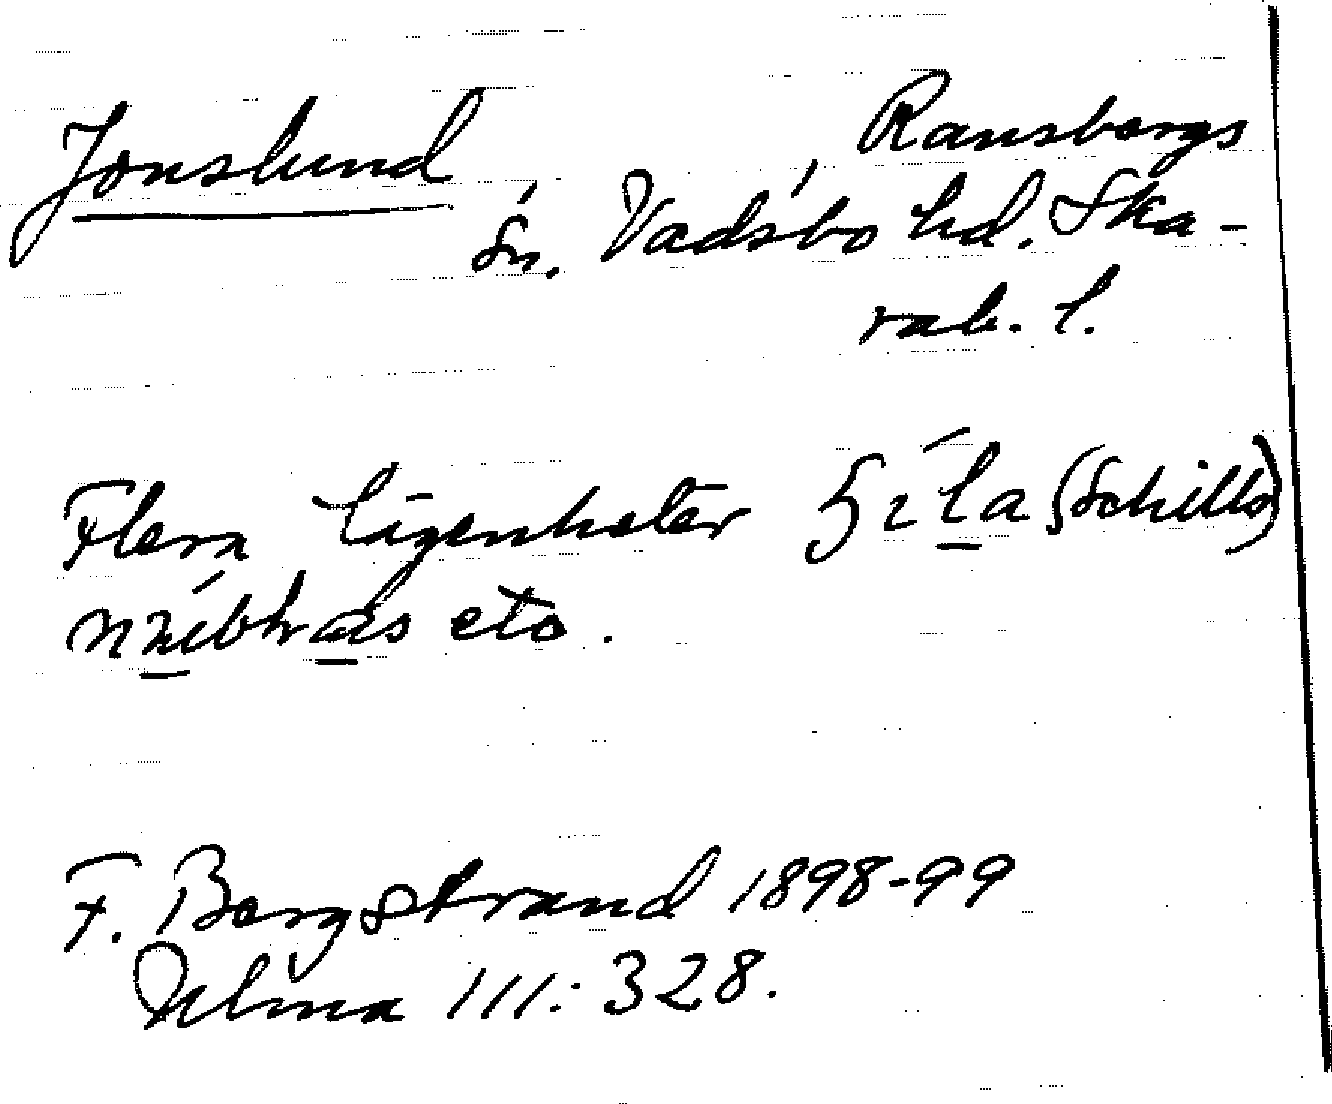 Jonslund
Ransbergs
Sn. Vadsbo hd. Ska-
rab. l.
Flera lägenheter (Schills)
etc.
F. Bergstrand 1898-99
Ulma 111:328.